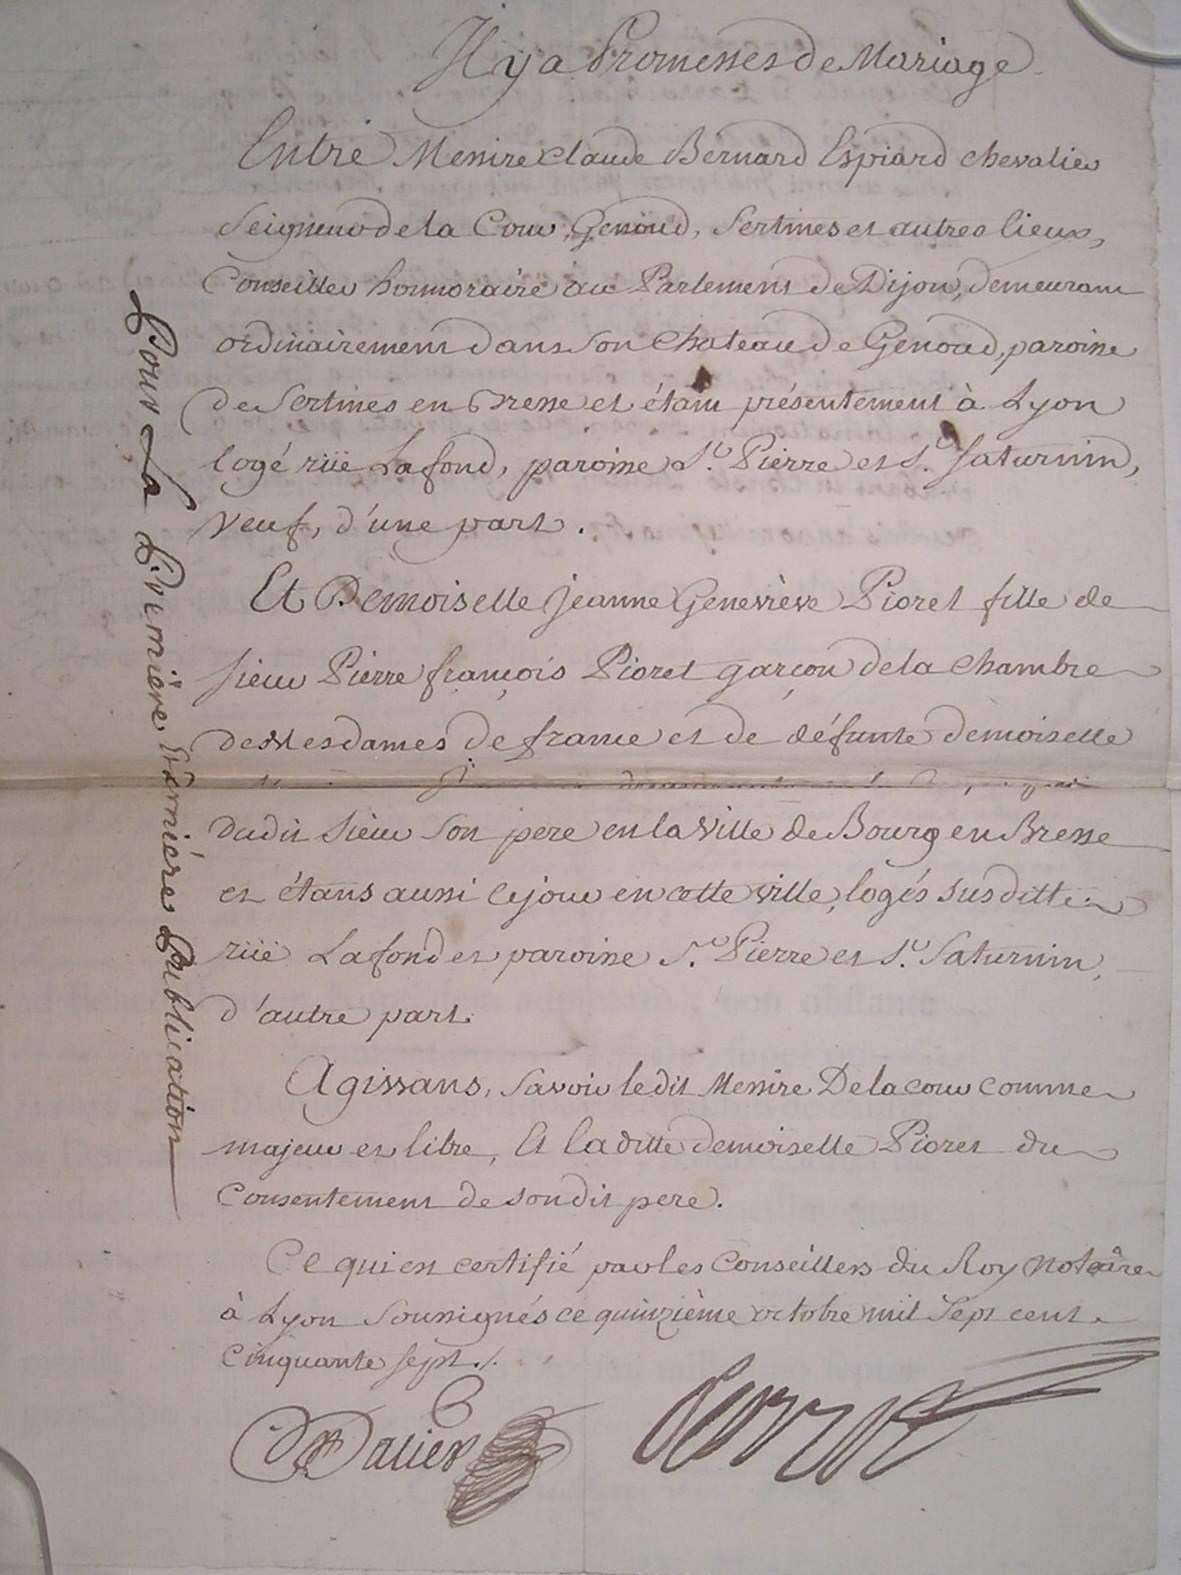 Il y a Promesses de Mariage
Entre Messire Claude Bernard Espiard chevalier
Seigneur de la Cour, Genoud, Sertines et autres lieux,
Conseiller honnoraire au Parlement de Dijon, demeurant
ordinairement dans son Chateau de Genoud, paroisse
de Sertines en Bresse et étant présentement à Lyon
logé rüe Lafond, paroisse St. Pierre et St. Saturnin,
veuf, d'une part.
Et Demoiselle Jeanne Genevieve Pioret fille de
sieur Pierre françois Pioret garçon de la Chambre
de Mesdames de france et de défunte demoiselle
dudit sieur son pere en la Ville de Bourg en Bresse
et étans aussi ce jour en cette ville, logés susditte
rüe Lafond et paroisse St. Pierre et St. Saturnin,
d'autre part.
Agissans, savoir ledit Messire De la cour comme
majeur et libre, Et la ditte demoiselle Pioret du
Consentement de son dit pere.
Ce qui est certifié par les Conseillers du Roy Notaires
à Lyon soussignés ce quinzième octobre mil sept cent
cinquante sept ./.
Pour La Premiere & derniére Publication